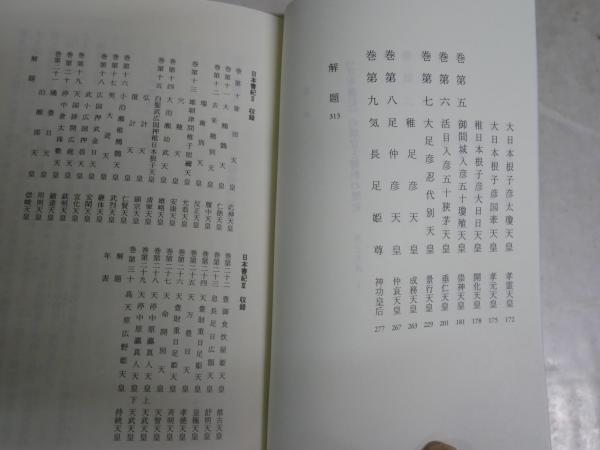 大日本根子彦太瓊天皇 孝霊天皇 172
大日本根子彦国牽天皇 孝元天皇 175
稚日本根子彦大日日天皇 開化天皇 178
巻第五 御間城入彦五十瓊殖天皇 崇神天皇 181
巻第六 活目入彦五十狭茅天皇 垂仁天皇 201
巻第七 大足彦忍代別天皇 景行天皇 229
稚足彦天皇 成務天皇 263
巻第八 足仲彦天皇 仲哀天皇 267
巻第九 気長足姫尊 神功皇后 277
解題 313
日本書紀Ⅱ 収録
巻第十 誉田天皇 応神天皇
巻第十一 大鷦鷯天皇 仁徳天皇
巻第十二 去来穂別天皇 履中天皇
瑞歯別天皇 反正天皇
巻第十三 雄朝津間稚子宿禰天皇 允恭天皇
穴穂天皇 安康天皇
巻第十四 大泊瀬幼武天皇 雄略天皇
巻第十五 白髪武広国押稚日本根子天皇 清寧天皇
弘計天皇 顕宗天皇
億計天皇 仁賢天皇
巻第十六 小泊瀬稚鷦鷯天皇 武烈天皇
巻第十七 男大迹天皇 継体天皇
巻第十八 広国押武金日天皇 安閑天皇
武小広国押盾天皇 宣化天皇
巻第十九 天国排開広庭天皇 欽明天皇
巻第二十 渟中倉太珠敷天皇 敏達天皇
巻第二十一 橘豊日天皇 用明天皇
泊瀬部天皇 崇峻天皇
解題
日本書紀Ⅲ 収録
巻第二十二 豊御食炊屋姫天皇 推古天皇
巻第二十三 息長足日広額天皇 舒明天皇
巻第二十四 天豊財重日足姫天皇 皇極天皇
巻第二十五 天万豊日天皇 孝徳天皇
巻第二十六 天豊財重日足姫天皇 斉明天皇
巻第二十七 天命開別天皇 天智天皇
巻第二十八 天渟中原瀛真人天皇 上 天武天皇
巻第二十九 天渟中原瀛真人天皇 下 天武天皇
巻第三十 高天原広野姫天皇 持統天皇
解題
年表